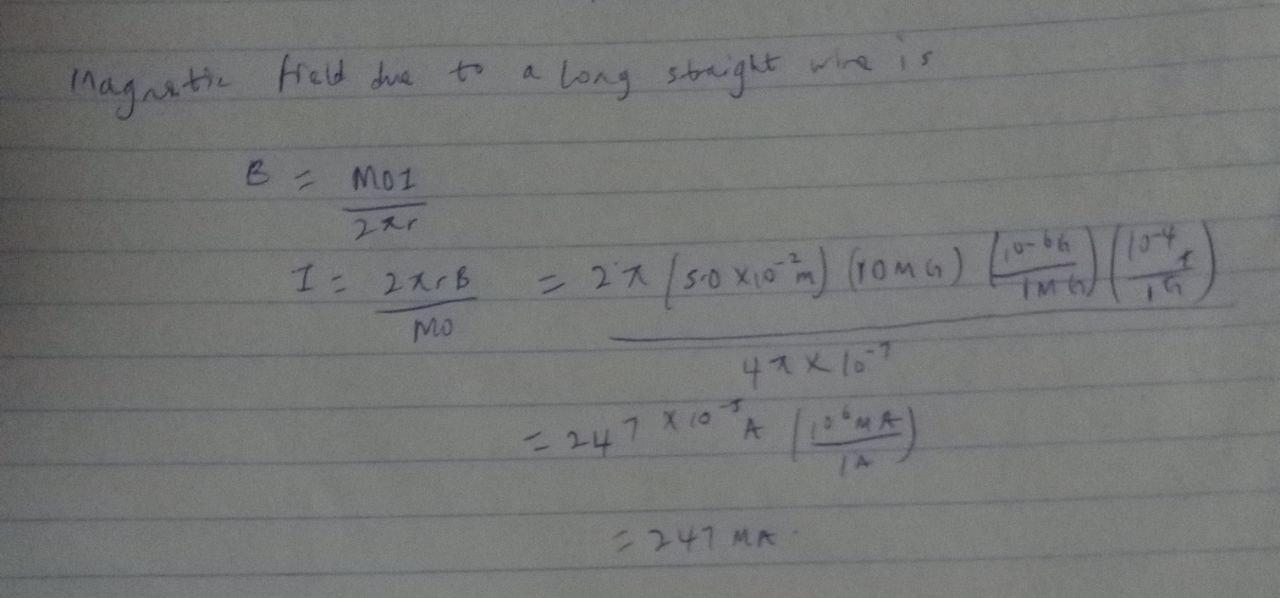 Magnetic field due to a long straight wire is
B = M0I / 2πr
I = 2πrB / M0 = 2π (5.0 × 10⁻² m) (10 MG) (10⁻⁶G / 1MG) (10⁻⁴ T / 1G) / 4π × 10⁻⁷
= 247 × 10⁻⁵ A (10⁶ MA / 1A)
= 247 MA.